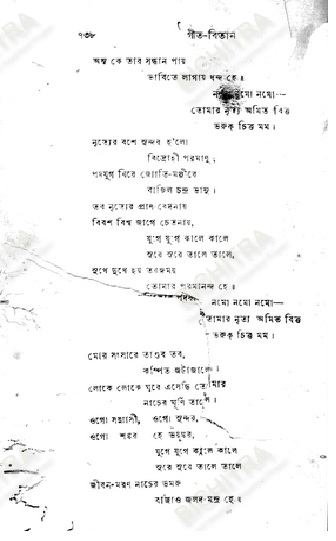 ৭৩৮ গীত-বিতান
অন্ত কে তার সন্ধান পায়
ভাবিতে লাগায় ধন্দ হে।
নমো নমো নমো—
তোমার নৃত্য অমিত বিত্ত
ভরুক চিত্ত মম।
নৃত্যের বশে সুন্দর হ'লো
বিদ্রোহী পরমাণু,
পদযুগ ঘিরে জ্যোতি-মঞ্জীরে
বাজিল চন্দ্র ভানু।
তব নৃত্যের প্রাণ-বেদনায়
বিবশ বিশ্ব জাগে চেতনায়,
যুগে যুগে কালে কালে
সুরে সুরে তালে তালে,
সুখে দুখে হয় তরঙ্গময়
তোমার পরমানন্দ হে।
নমো নমো নমো—
তোমার নৃত্য অমিত বিত্ত
ভরুক চিত্ত মম।
মোর সংসারে তাণ্ডব তব,
কম্পিত জটাজালে।
লোকে লোকে ঘুরে এসেছি তোমার
নাচের ঘূর্ণি তালে।
ওগো সন্ন্যাসী, ওগো সুন্দর,
ওগো শঙ্কর হে ভয়ঙ্কর,
যুগে যুগে কালে কালে
সুরে সুরে তালে তালে
জীবন-মরণ নাচের ডমরু
বাজাও জলদ-মন্দ্র হে।